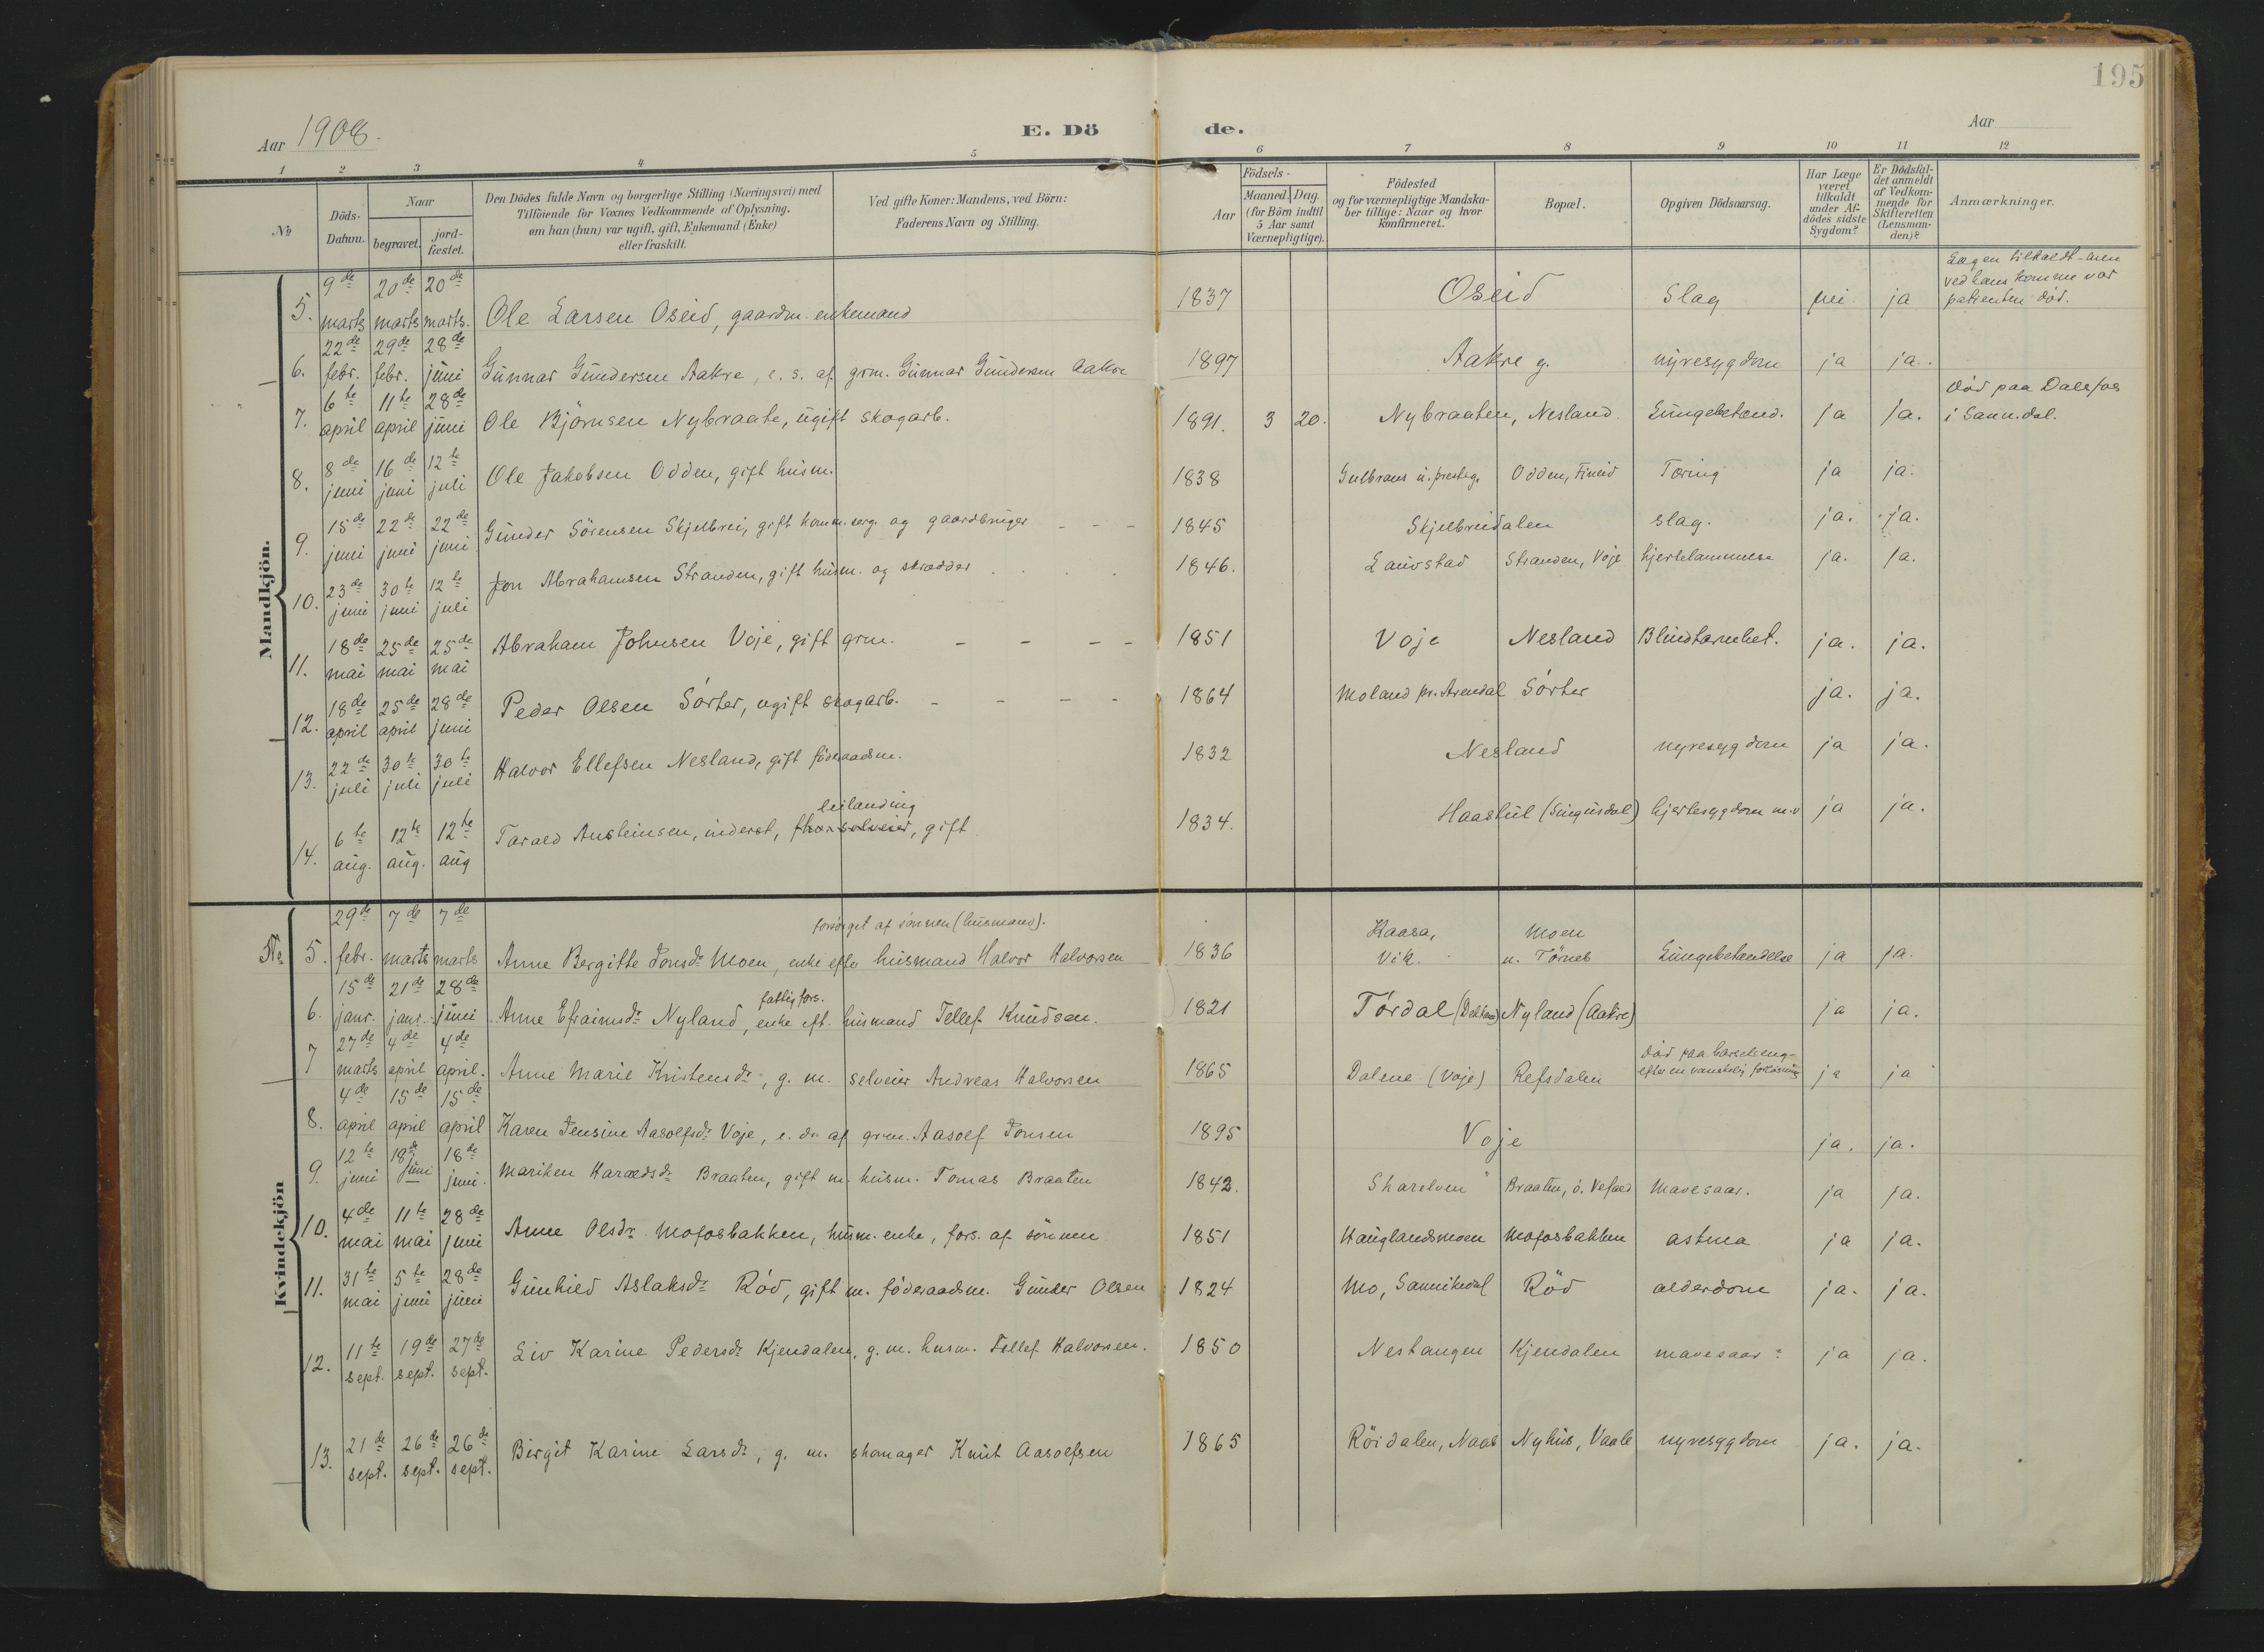 195
Aar 1908.
E. Dö de.
Aar
1 2 3 4 5 6 7 8 9 10 11 12
No
Döds-Datum.
Naar
begravet.
jord-fæstet.
Den Dödes fulde Navn og borgerlige Stilling (Næringsvei) med
Tilföiende for Voxnes Vedkommende af Oplysning,
om han (hun) var ugift, gift, Enkemand (Enke)
eller fraskilt.
Ved gifte Koner: Mandens, ved Börn:
Faderens Navn og Stilling.
Födsels-
Aar
Maaned. Dag.
(for Börn indtil
5 Aar samt
Værnepligtige).
Födested
og for værnepligtige Mandska-
ber tillige: Naar og hvor
konfirmeret.
Bopæl.
Opgiven Dödsaarsag.
Har Læge
været
tilkaldt
under Af-
dödes sidste
Sygdom?
Er Dödsfal-
det anmeldt
af Vedkom-
mende for
Skifteretten
(Lensman-
den)?
Anmærkninger.
Mandkjön.
5. 9de marts 20de marts 20de marts. Ole Larsen Oseid, gaardm. enkemand 1837 Oseid Slag nei. ja Lægen tilkaldt - men
ved hans komme var
patienten död.
6. 22de febr. 29de febr. 28de juni Gunnar Gundersen Aakre, e. s. af grm. Gunnar Gundersen Aakre 1897 Aakre g. nyresygdom ja ja.
7. 6te april 11te april 28de juni Ole Björnsen Nybraate, ugift skogarb. 1891. 3 20. Nybraaten, Nesland. Lungebetænd. ja ja. död paa Dalsfos
i Sann.dal.
8. 8de juni 16de juni 12te juli Ole Jakobsen Odden, gift husm. 1838 Gulbrans u. presteg. Odden, Fineid Tæring ja ja.
9. 15de juni 22de juni 22de juni Gunder Sörensen Skjelbrei, gift og gaardbruger - - - 1845 Skjelbreidalen slag. ja. ja.
10. 23de juni 30te juni 12te juli Jon Abrahamsen Stranden, gift husm. og skrædder 1846. Lauvstad Stranden, Voje hjertelammelse ja. ja.
11. 18de mai 25de mai 25de mai Abraham Johnsen Voje, gift grm. - - - - 1851 Voje Nesland Blindtarmbet. ja. ja.
12. 18de april 25de april 28de juni Peder Olsen Sörter, ugift skogarb. - - - - 1864 Moland pr. Arendal Sörter ja. ja.
13. 22de juli 30te juli 30te juli Halvor Ellefsen Nesland, gift föderaadsm. 1832 Nesland nyresygdom ja ja.
leilænding
14. 6te aug. 12te aug. 12te aug Tarald Austeinsen, inderst, selveier, gift 1834. Haastul (Singusdal) hjertesygdom m.v ja ja.
Kvindekjön
forsörget af sönnen (husmand).
No 5. 29de febr. 7de marts 7de marts Anne Bergitte Jonsdr. Moen, enke efter husmand Halvor Halvorsen 1836 Kaasa, Vik. Moen u. Törnes Lungebetændelse ja ja.
fattigfors.
6. 15de janr. 21de janr. 28de juni Anne Efraimsdr. Nyland, enke eft. husmand Tellef Knudsen. 1821 Tördal Nyland (Aakre) ja ja.
7 27de marts 4de april 4de april. Anne Marie Kristensdr., g. m. selveier Andreas Halvorsen 1865 Dalene (Voje) Refsdalen död paa barselseng-
efter en vanskelig forlösning ja ja
8. 4de april 15de april 15de april Karen Jensine Aasolfsdr. Voje, e. dr. af grm. Aasolf Jonsen 1895 Voje ja. ja.
9. 12te juni 18de juni 18de juni. Mariken Haraldsdr. Braaten, gift m. husm. Tomas Braaten 1842. Skarelven Braaten, ö. Vefald Mavesaar. ja ja.
10. 4de mai 11te mai 28de juni Anne Olsdr. Mofosbakken, husm. enke, fors. af sönnen 1851 Hauglandsmoen Mofosbakken astma ja ja.
11. 31te mai 5te juni 28de juni Gunhild Aslaksdr. Röd, gift m. föderaadsm. Gunder Olsen 1824 Mo, Sannikedal Röd alderdom ja. ja.
12. 11te sept. 19de sept. 27de sept. Liv Karine Pedersdr. Kjendalen, g. m. husm. Tellef Halvorsen. 1850 Nestangen Kjendalen mavesaar? ja ja.
13. 21de sept. 26de sept. 26de sept. Birgit Karine Larsdr., g. m. skomager Knut Aasolfsen 1865 Röidalen, Naas Nyhus, Vaale nyresygdom ja. ja.